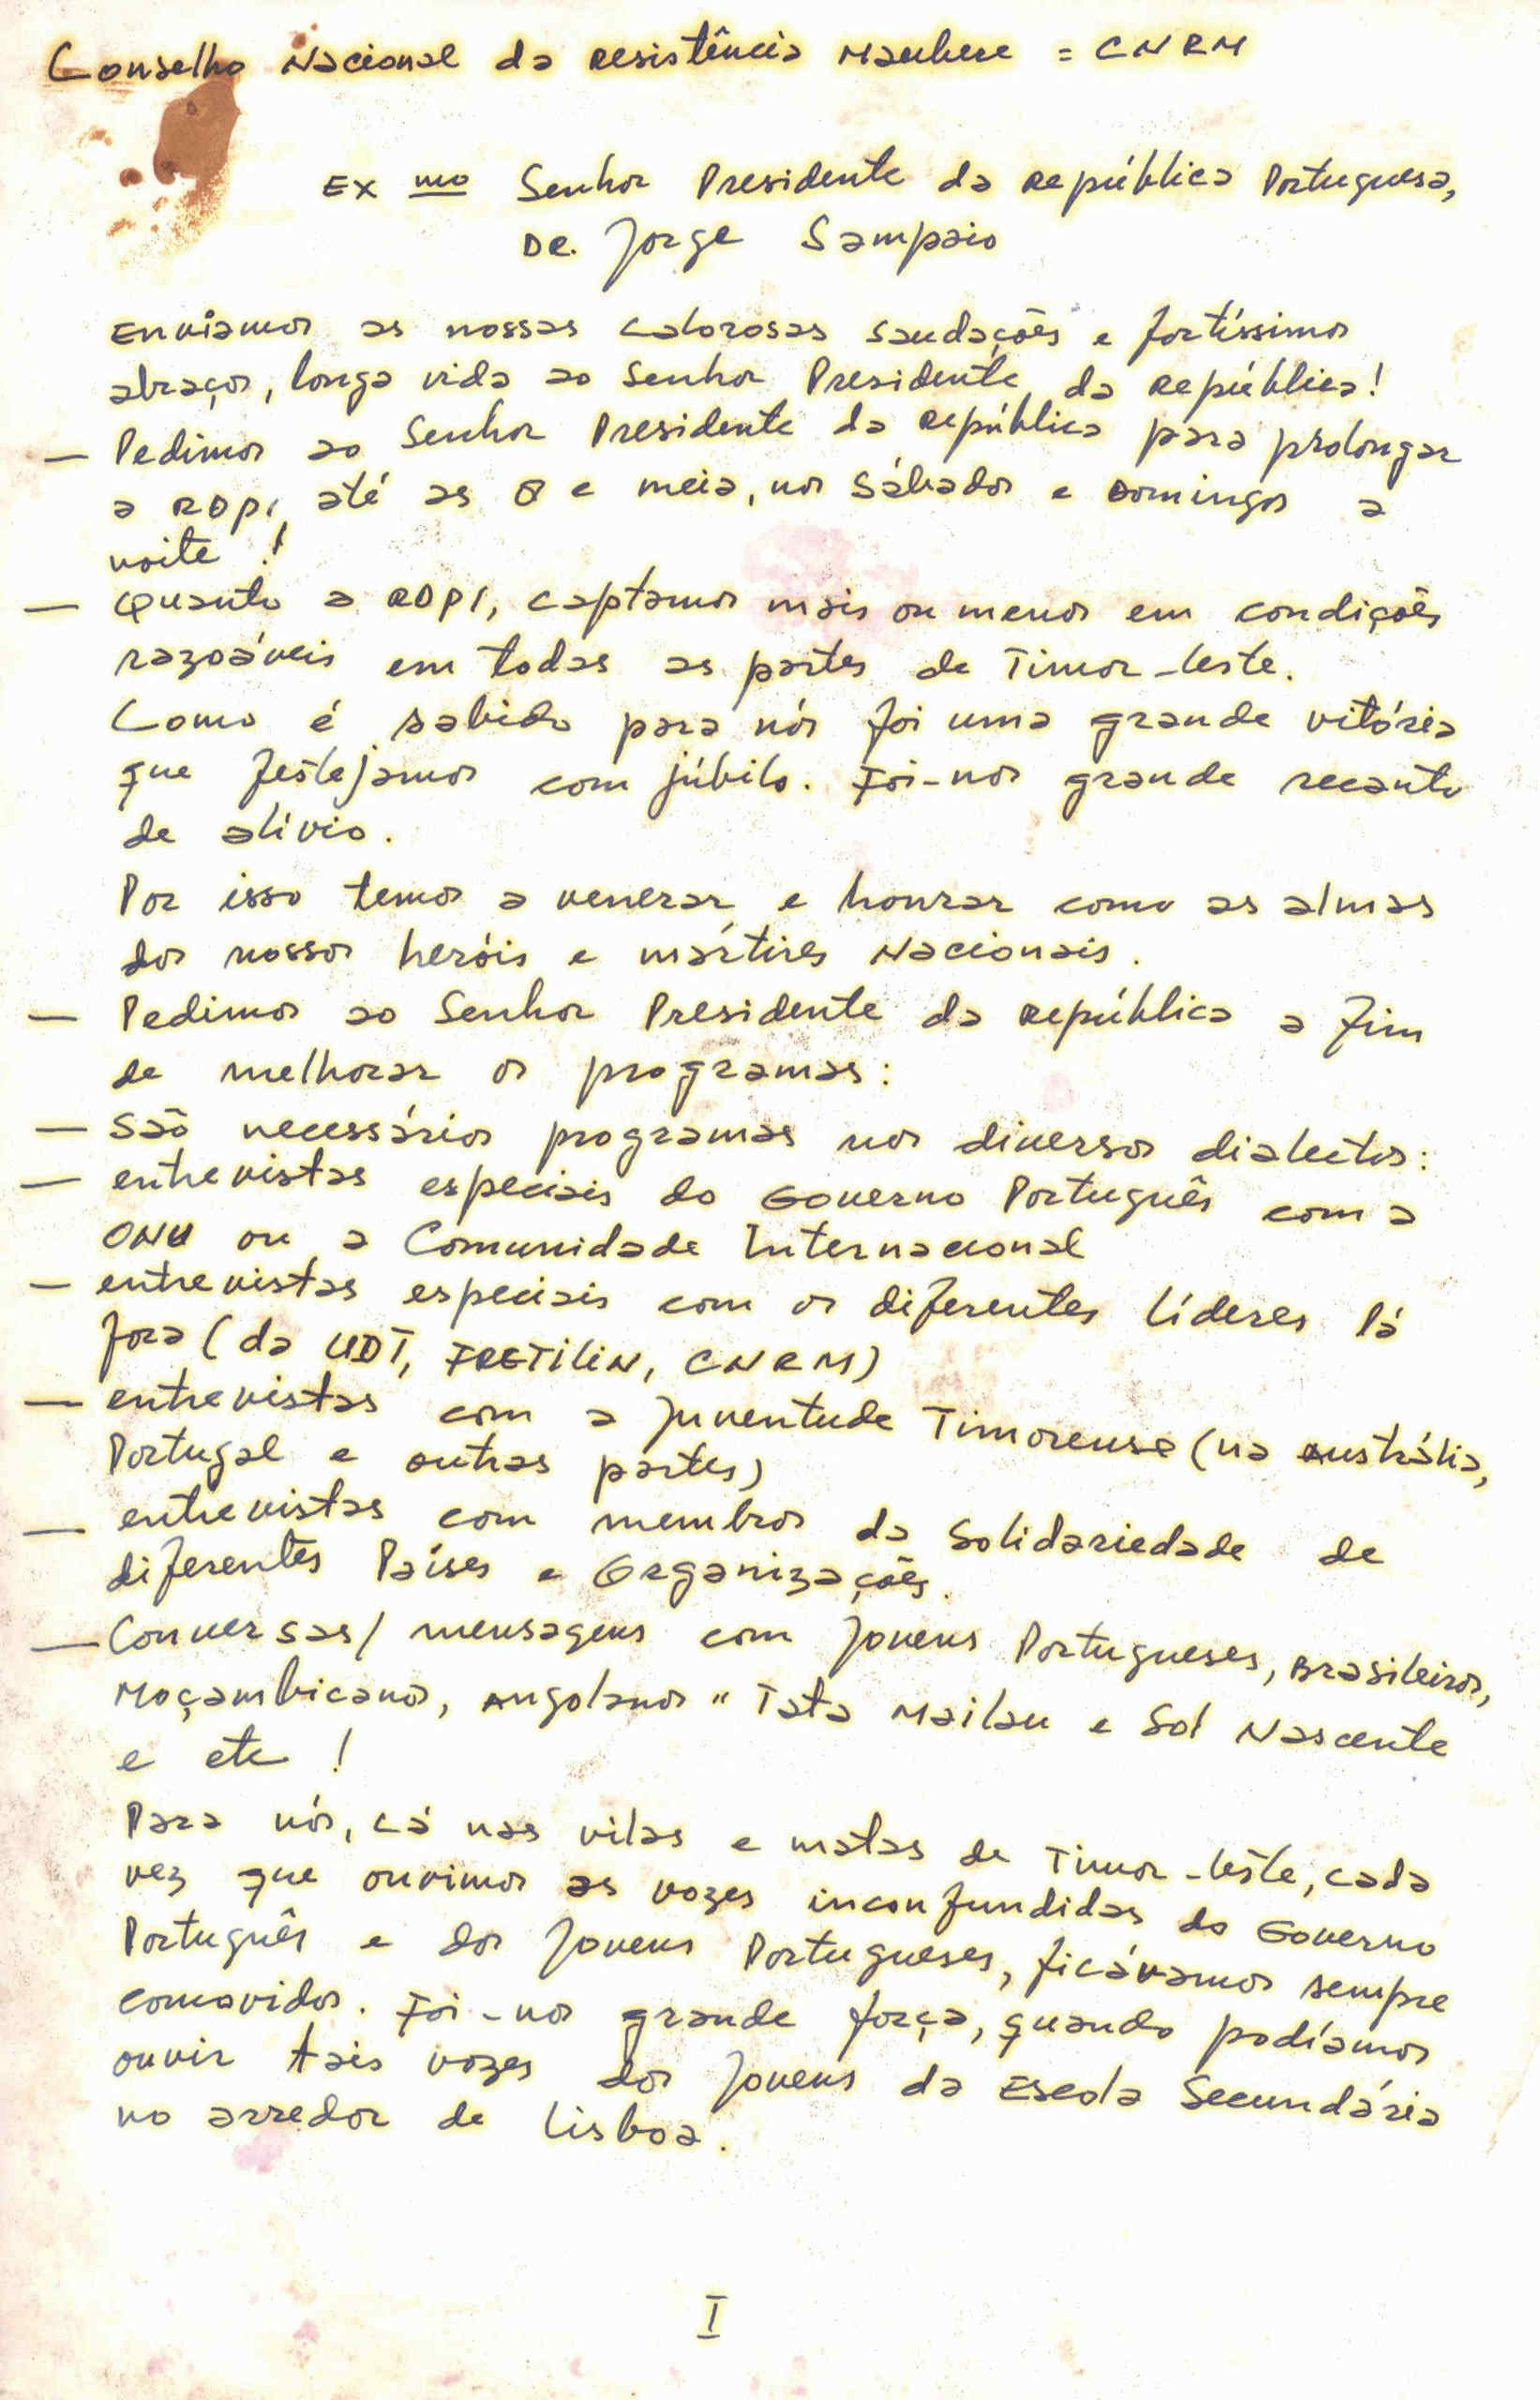 Conselho Nacional da Resistência Maubere = CNRM
Ex mo Senhor Presidente da República Portuguesa,
Dr. Jorge Sampaio
Enviamos as nossas calorosas saudações e fortíssimos
abraços, longa vida ao Senhor Presidente da República!
— Pedimos ao Senhor Presidente da República para prolongar
a RDPI, até as 8 e meia, nos Sábados e Domingos a
noite !
— Quanto a RDPI, captamos mais ou menos em condições
razoáveis em todas as partes de Timor-Leste.
Como é sabido para nós foi uma grande vitória
que festejamos com júbilo. Foi-nos grande recanto
de alívio.
Por isso temos a venerar e honrar como as almas
dos nossos heróis e mártires Nacionais.
— Pedimos ao Senhor Presidente da República a fim
de melhorar os programas:
— São necessários programas nos diversos dialectos:
— entrevistas especiais do Governo Português com a
ONU ou a Comunidade Internacional
— entrevistas especiais com os diferentes líderes lá
fora (da UDT, FRETILIN, CNRM)
— entrevistas com a Juventude Timorense (na Austrália,
Portugal e outras partes)
— entrevistas com membros da Solidariedade de
diferentes Países e Organizações.
— Conversas/ mensagens com Jovens Portugueses, Brasileiros,
Moçambicanos, Angolanos " Tata Mailau e Sol Nascente
e etc !
Para nós, cá nas vilas e matas de Timor-Leste, cada
vez que ouvimos as vozes inconfundidas do Governo
Português e dos Jovens Portugueses, ficávamos sempre
comovidos. Foi-nos grande força, quando podíamos
ouvir tais vozes dos Jovens da Escola Secundária
no arredor de Lisboa.
I